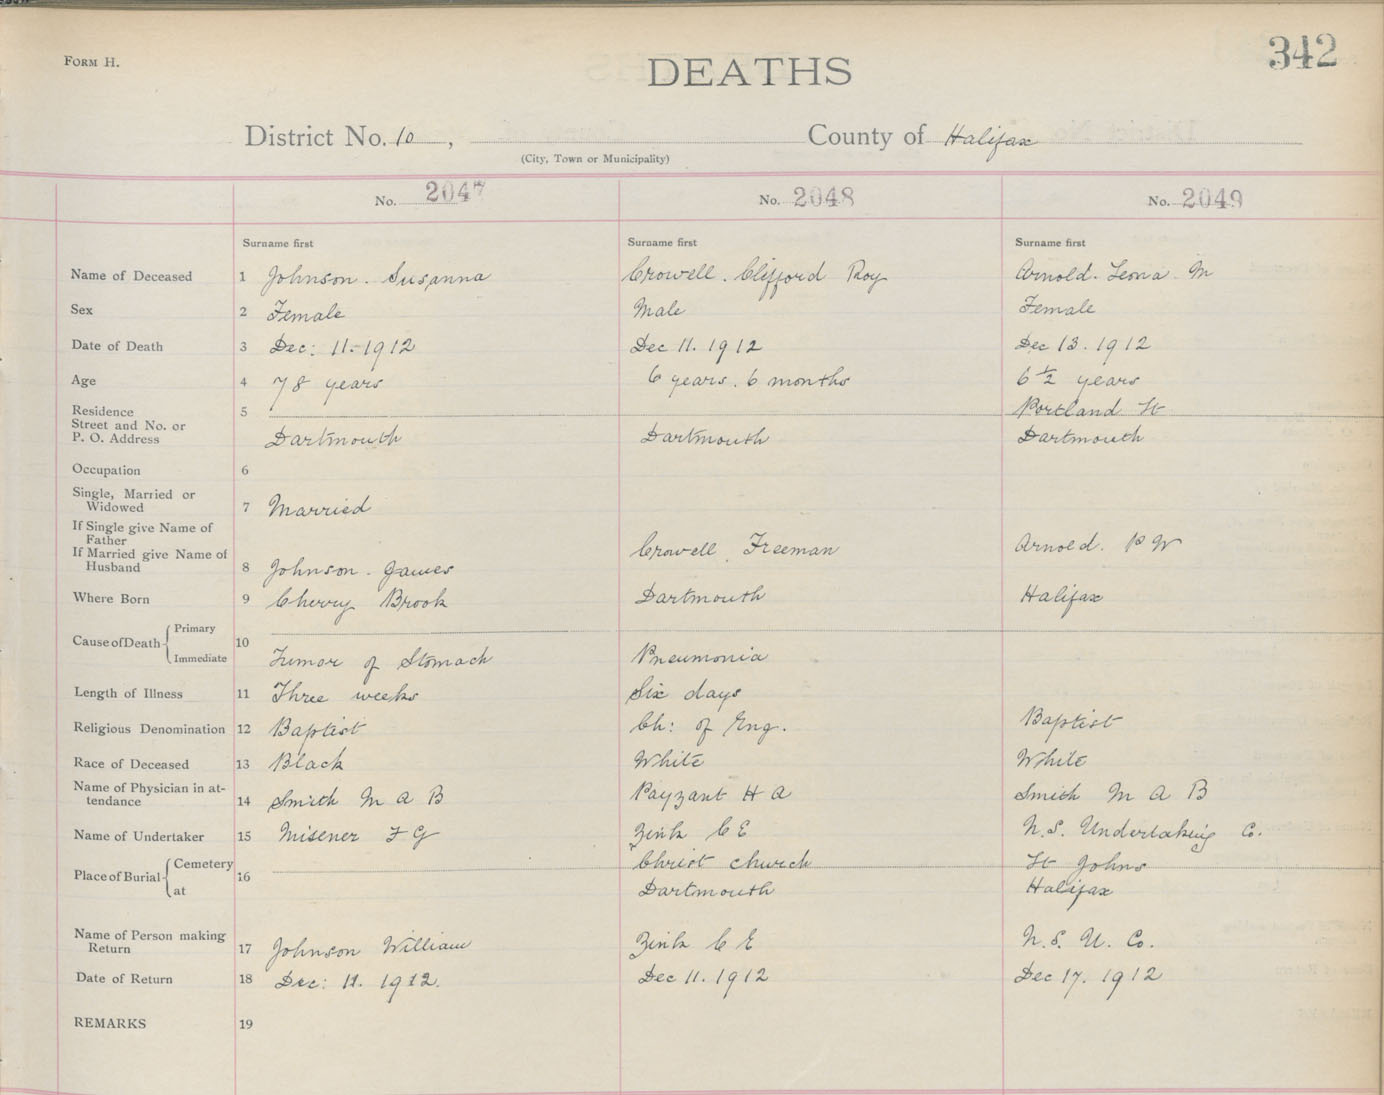 FORM H.
DEATHS
342
District No. 10 , County of Halifax
(City, Town or Municipality)
No. 2047 No. 2048 No. 2049
Surname first Surname first Surname first
Name of Deceased 1 Johnson. Susanna Crowell. Clifford Roy Arnold. Leona M
Sex 2 Female Male Female
Date of Death 3 Dec: 11-1912 Dec 11. 1912 Dec 13. 1912
Age 4 78 years 6 years. 6 months 6 1/2 years
Residence 5 Portland St
Street and No. or
P. O. Address Dartmouth Dartmouth Dartmouth
Occupation 6
Single, Married or
Widowed 7 Married
If Single give Name of
Father
If Married give Name of Crowell Freeman Arnold. P W
Husband 8 Johnson. James
Where Born 9 Cherry Brook Dartmouth Halifax
Cause of Death Primary 10
Immediate Tumor of Stomach Pneumonia
Length of Illness 11 Three weeks Six days
Religious Denomination 12 Baptist Ch: of Eng. Baptist
Race of Deceased 13 Black White White
Name of Physician in at-
tendance 14 Smith M A B Payzant H A Smith M A B
Name of Undertaker 15 Misener F G Zink C E N.S. Undertaking Co.
Place of Burial Cemetery 16 Christ Church St Johns
at Dartmouth Halifax
Name of Person making
Return 17 Johnson William Zink C E N.S.U. Co.
Date of Return 18 Dec: 11. 1912. Dec 11. 1912 Dec 17. 1912
REMARKS 19